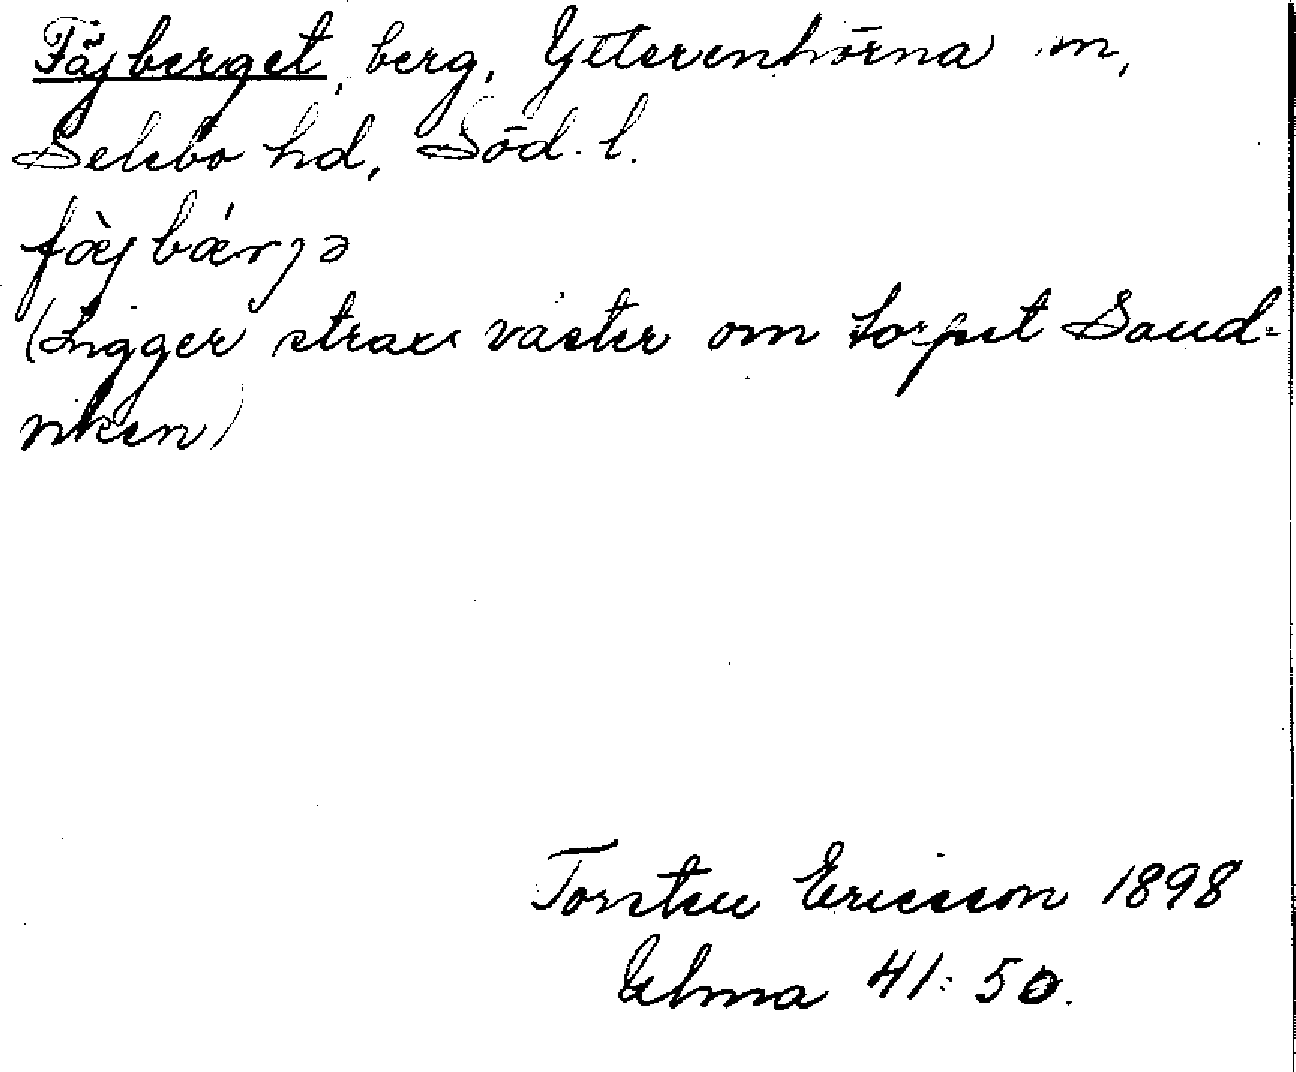 Fäjberget, berg, Ytterenhörna sn,
Selebo hd, Söd. l.
fä̀jbǽrjə
(Ligger strax väster om torpet Sand-
viken)
Torsten Ericsson 1898
Elma 41: 50.